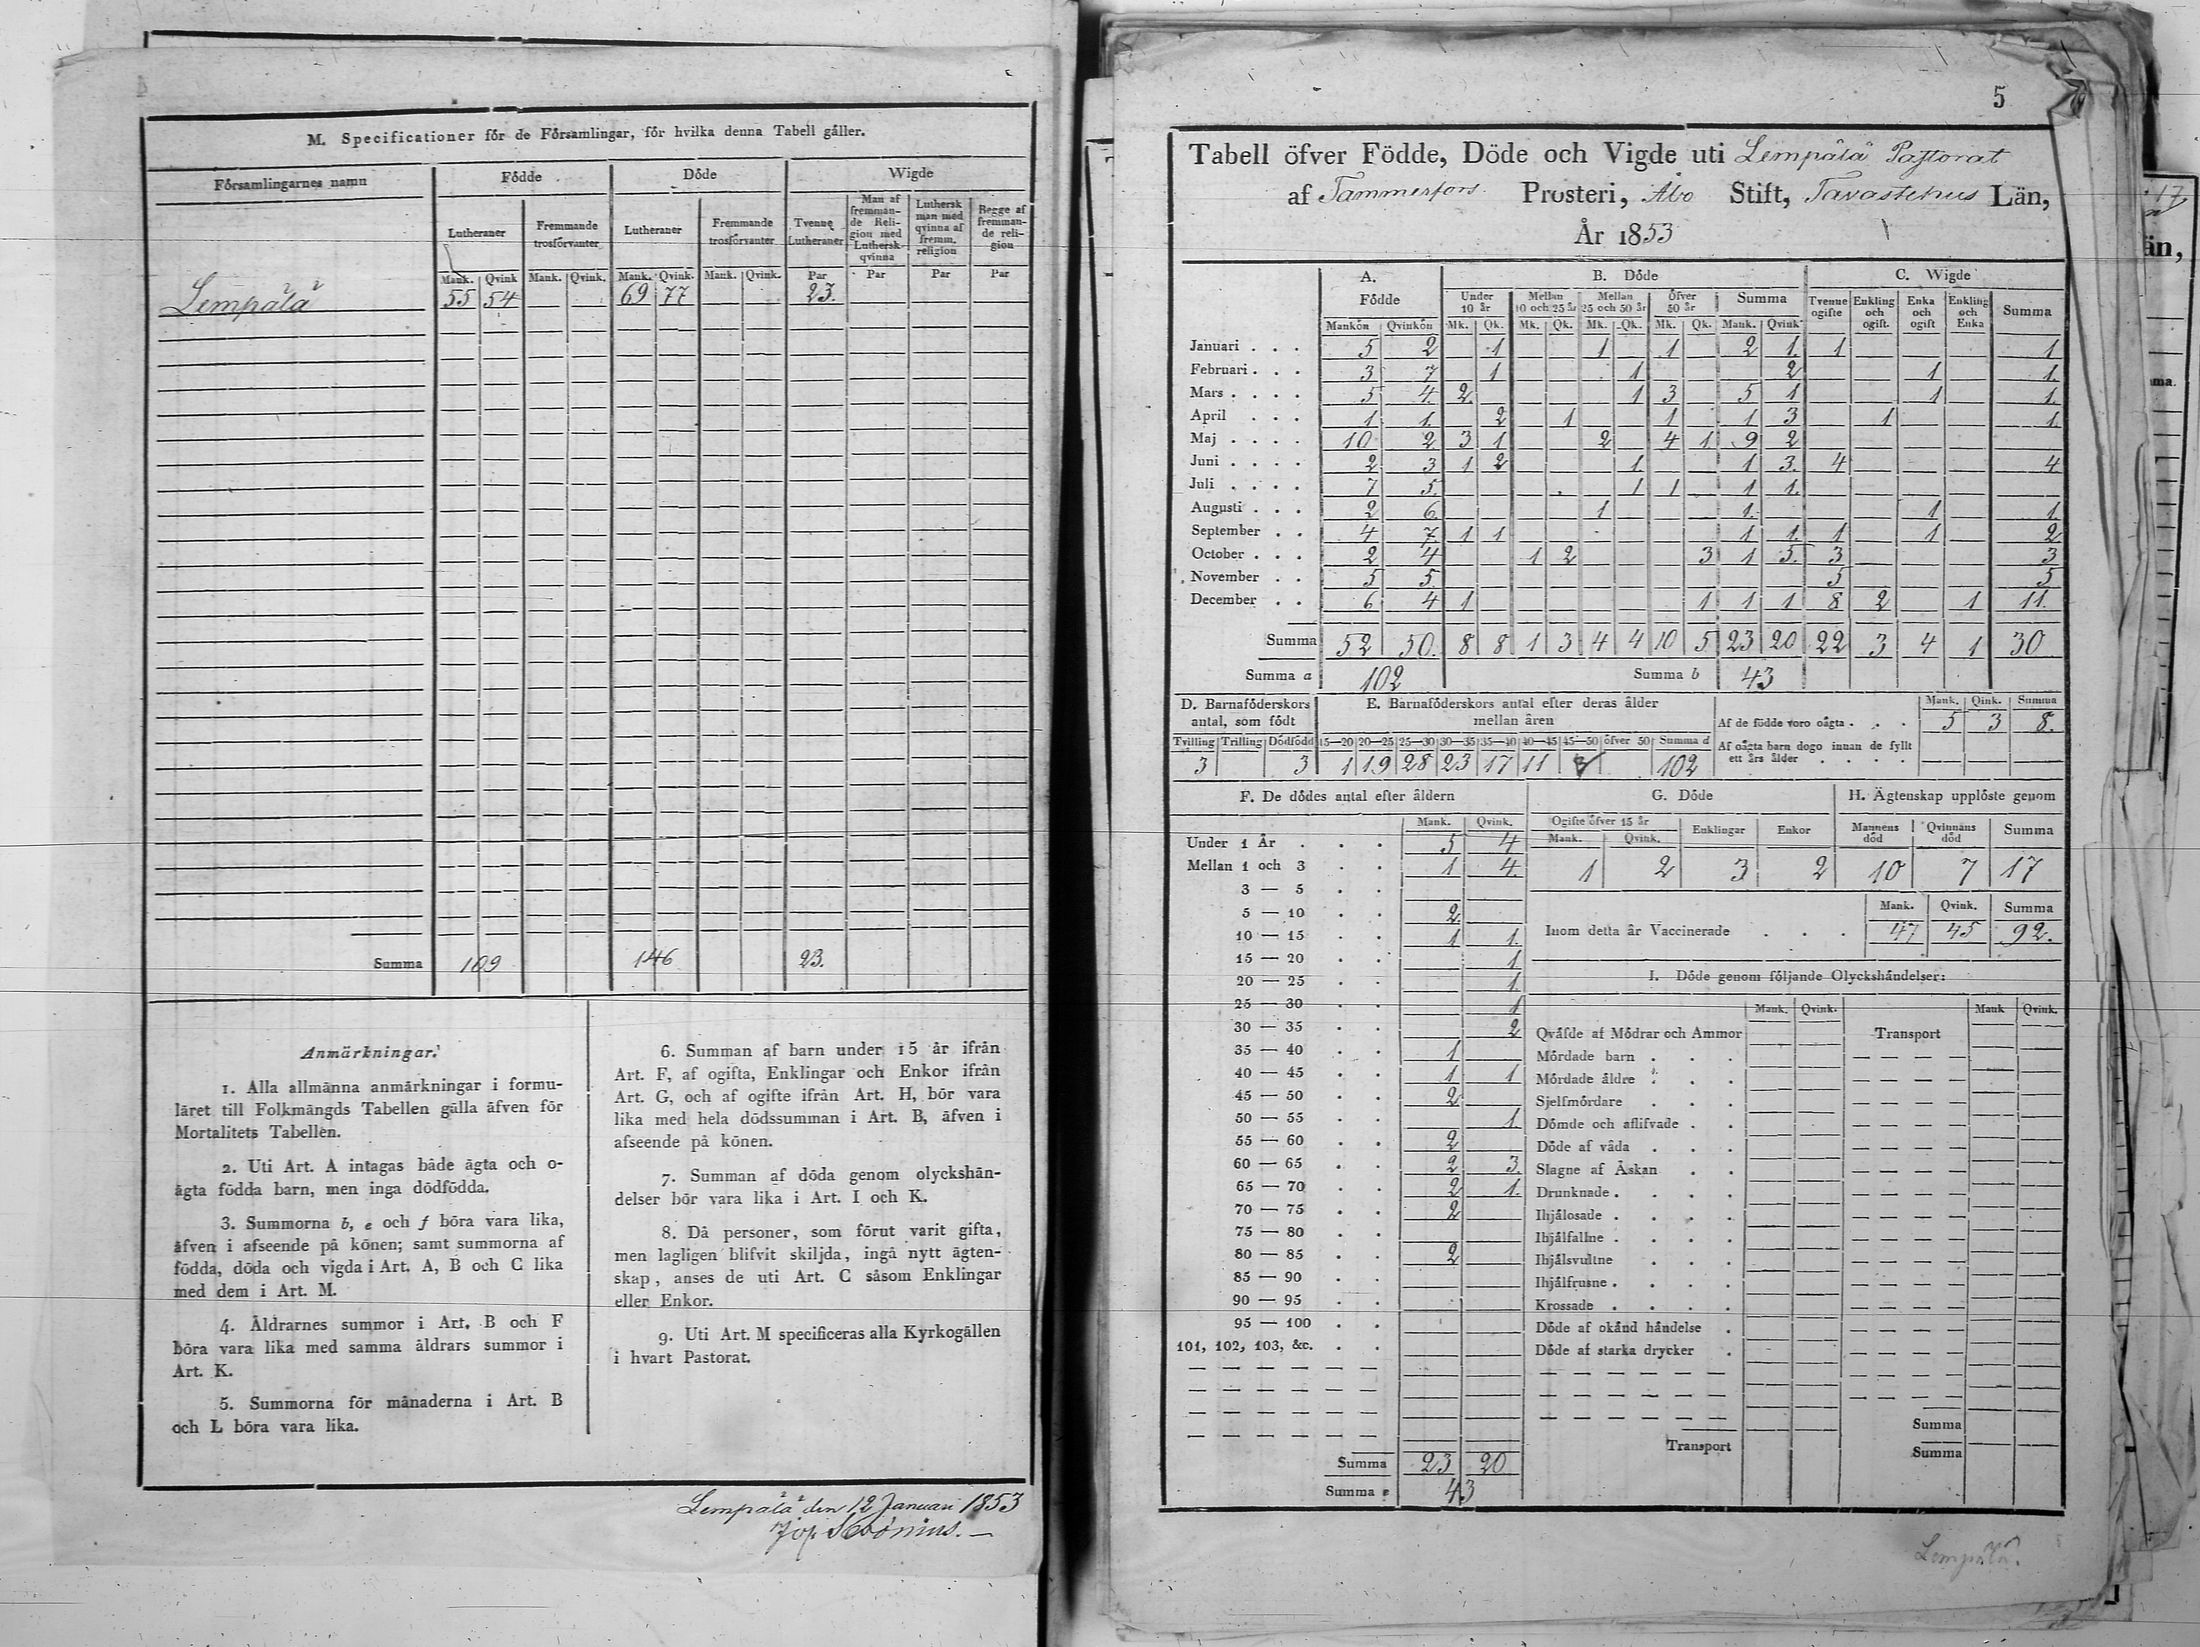 M. Specificationer för de Församlingar, för hvilka denna Tabell gäller.
Församlingarnes namn Födde Döde Wigde
Lutheraner Fremmande trosförvanter Lutheraner Fremmande trosförvanter Tvenne Lutheraner Man af fremmande Religion med Luthersk qvinna Luthersk man med qvinna af fremm. religion Begge af fremmande religion
Mank. Qvink Mank. Qvink. Mank. Qvink. Mank. Qvink. Par Par Par Par
Lempälä 55 54 69 77 23.
Summa 109 146 23.
Anmärkningar.
1. Alla allmänna anmärkningar i formu-
läret till Folkmängds Tabellen gälla äfven för
Mortalitets Tabellen.
2. Uti Art. A intagas både ägta och o-
ägta födda barn, men inga dödfödda.
3. Summorna b, e och f böra vara lika,
äfven i afseende på könen; samt summorna af
födda, döda och vigda i Art. A, B och C lika
med dem i Art. M.
4. Åldrarnes summor i Art. B och F
böra vara lika med samma åldrars summor i
Art. K.
5. Summorna för månaderna i Art. B
och L böra vara lika.
6. Summan af barn under 15 år ifrån
Art. F, af ogifta, Enklingar och Enkor ifrån
Art. G, och af ogifte ifrån Art. H, bör vara
lika med hela dödssumman i Art. B, äfven i
afseende på könen.
7. Summan af döda genom olyckshän-
delser bör vara lika i Art. I och K.
8. Då personer, som förut varit gifta,
men lagligen blifvit skiljda, ingå nytt ägten-
skap, anses de uti Art. C såsom Enklingar
eller Enkor.
9. Uti Art. M specificeras alla Kyrkogällen
i hvart Pastorat.
Lempälä den 12 Januari 1853
5
Tabell öfver Födde, Döde och Vigde uti Lempälä Pastorat
af Tammerfors Prosteri, Åbo Stift, Tavastehus Län,
År 1853
A. Födde B. Döde C. Wigde
Under 10 år Mellan 10 och 25 år Mellan 25 och 50 år Öfver 50 år Summa Tvenne ogifte Enkling och ogift. Enka och ogift Enkling och Enka Summa
Mankön Qvinkön Mk. Qk. Mk. Qk. Mk. Qk. Mk. Qk. Mank. Qvink
Januari . . . 5 2 1 1 1 2 1. 1 1
Februari . . . 3 7 1 1 2 1 1.
Mars . . . . 5 4. 2. 1 3 5 1 1 1.
April . . . 1 1. 2 1 1 1 3 1 1.
Maj . . . . 10 2 3 1 2 4 1 9 2
Juni . . . . 2 3 1 2 1. 1 3. 4 4
Juli . . . . 7 5. 1 1 1 1.
Augusti . . . 2 6. 1 1. 1 1.
September . . 4 7 1 1 1 1. 1 1 2
October . . . 2 4 1 2 3 1 5. 3 3
November . . 5 5 5 5
December . . 6 4 1 1 1 1 8 2 1 11.
Summa 52 50. 8 8 1 3 4 4 10 5 23 20 22 3 4 1 30
Summa a 102 Summa b 43
D. Barnaföderskors antal, som födt
Tvilling Trilling Dödfödd
3 3
E. Barnaföderskors antal efter deras ålder
mellan åren
15—20 20—25 25—30 30—35 35—40 40—45 45—50 öfver 50 Summa d
1 19 28 23 17 11 3 102
Mank. Qink. Summa
Af de födde voro oägta . . . 5 3 8.
Af oägta barn dogo innan de fyllt
ett års ålder . . . .
F. De dödes antal efter åldern
Mank. Qvink.
Under 1 År . . . 5 4
Mellan 1 och 3 . . 1 4.
3 — 5 . .
5 — 10 . . 2.
10 — 15 . . 1 1.
15 — 20 . . 1
20 — 25 . . 1.
25 — 30 . . 1
30 — 35 . . 2
35 — 40 . . 1
40 — 45 . . 1 1
45 — 50 . . 2
50 — 55 . . 1.
55 — 60 . . 2
60 — 65 . . 2 3.
65 — 70 . . 2 1.
70 — 75 . . 2
75 — 80 . .
80 — 85 . . 2
85 — 90 . .
90 — 95 . .
95 — 100 . .
101, 102, 103, &c. . .
Summa 23 20
Summa e 43
G. Döde
Ogifte öfver 15 år Enklingar Enkor
Mank. Qvink.
1 2 3 2
H. Ägtenskap upplöste genom
Mannens död Qvinnans död Summa
10 7 17
Mank. Qvink. Summa
Inom detta år Vaccinerade . . . 47 45 92.
I. Döde genom följande Olyckshändelser:
Mank. Qvink. Mank Qvink.
Qväfde af Mödrar och Ammor Transport
Mördade barn . . .
Mördade äldre . . .
Sjelfmördare . . .
Dömde och aflifvade . .
Döde af våda . . .
Slagne af Åskan . .
Drunknade . . . .
Ihjälosade . . . .
Ihjälfallne . . . .
Ihjälsvultne . . .
Ihjälfrusne . . . .
Krossade . . . .
Döde af okänd händelse .
Döde af starka drycker .
Summa
Transport Summa
Lempälä.